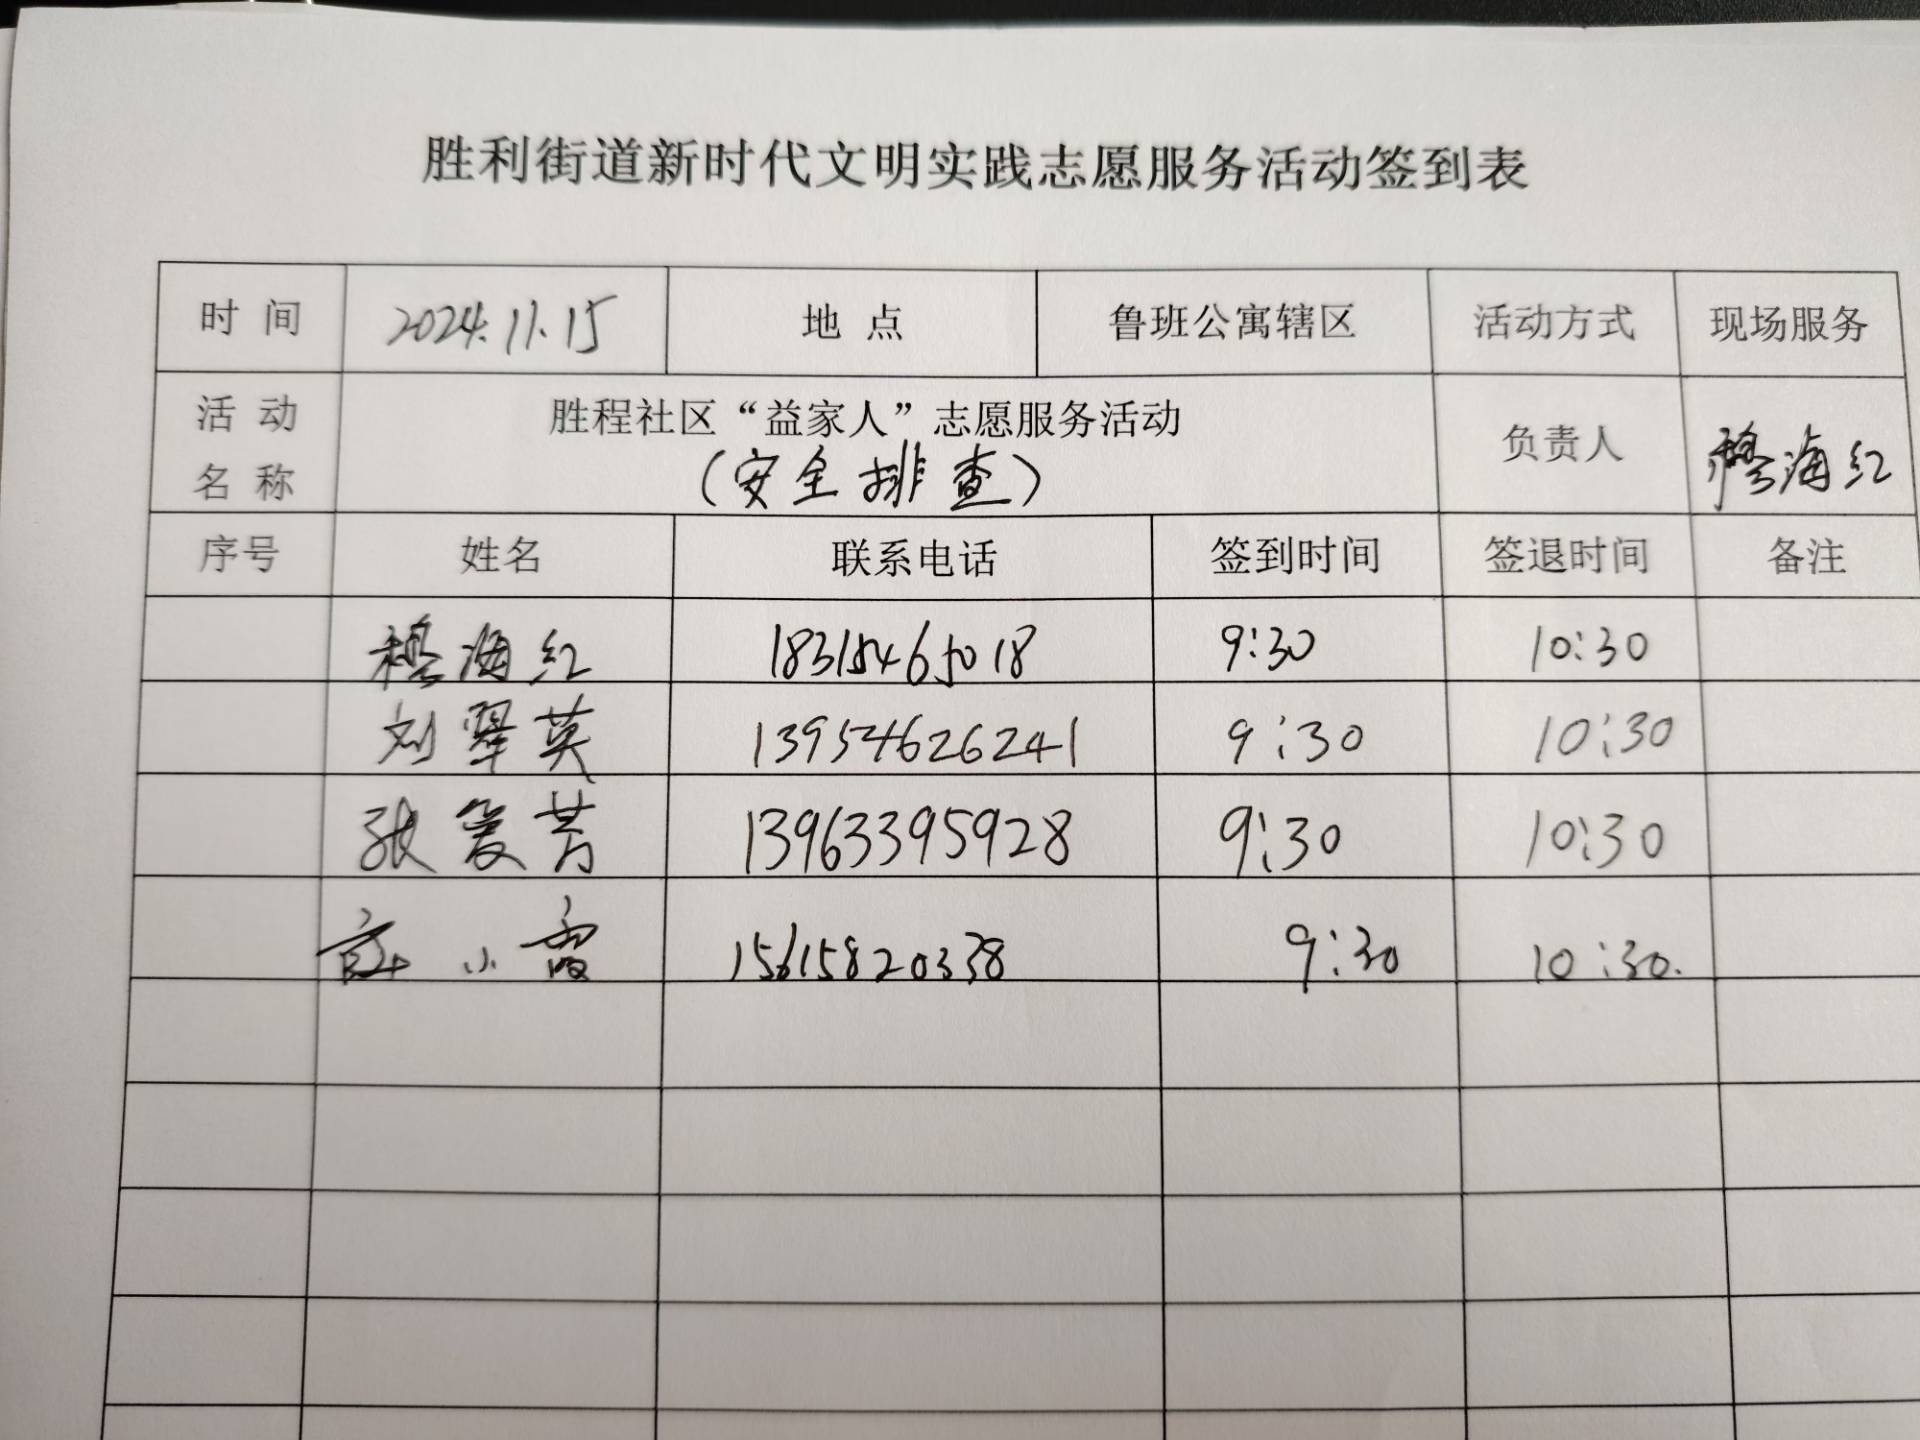 胜利街道新时代文明实践志愿服务活动签到表
时 间 2024.11.15 地 点 鲁班公寓辖区 活动方式 现场服务
活 动 名 称 胜程社区“益家人”志愿服务活动 负责人 穆海红
(安全排查)
序号 姓名 联系电话 签到时间 签退时间 备注
穆海红 18315465018 9:30 10:30
刘翠英 13954626241 9:30 10:30
张爱芳 13963395928 9:30 10:30
小霞 15615820338 9:30 10:30.